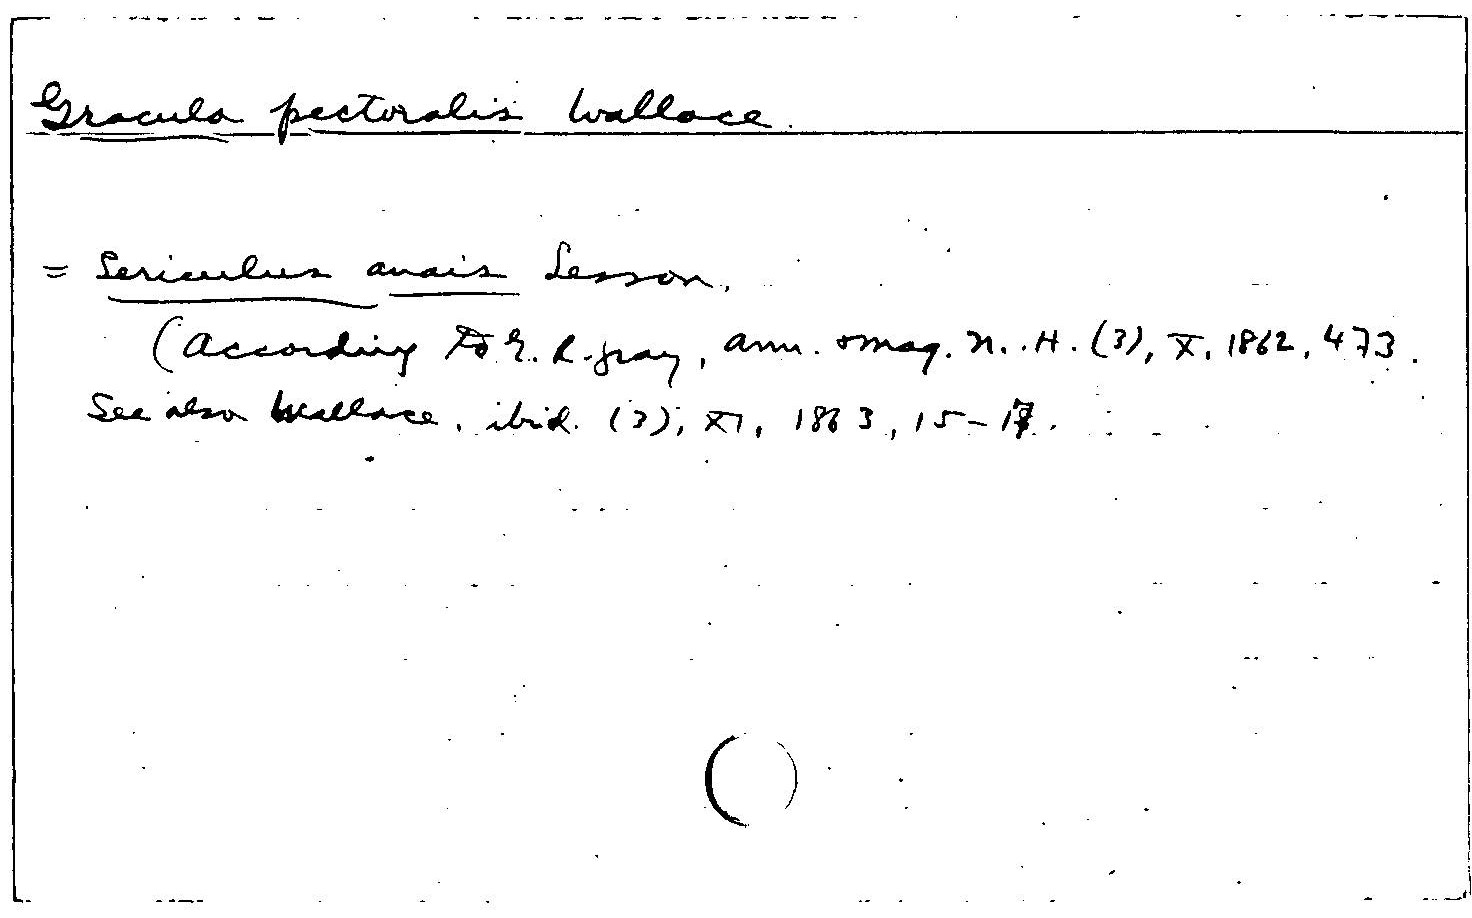 Gracula pectoralis Wallace.
= Sericulus anais Lesson.
(According to G. R. Gray, Ann. & Mag. N. H. (3), X, 1862, 473.
See also Wallace, ibid. (3), XI, 1863, 15-17.